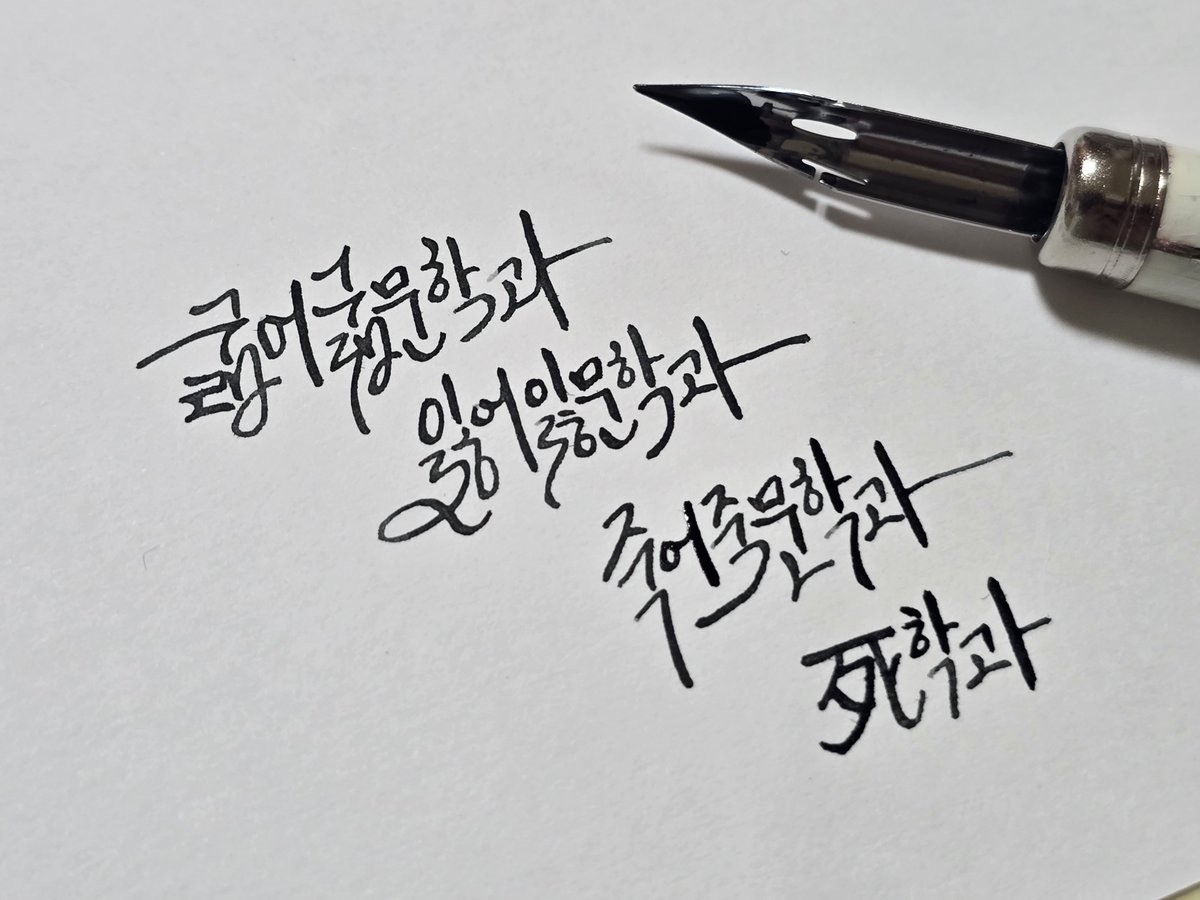 굶어굶문학과
잃어잃문학과
죽어죽문학과
死학과